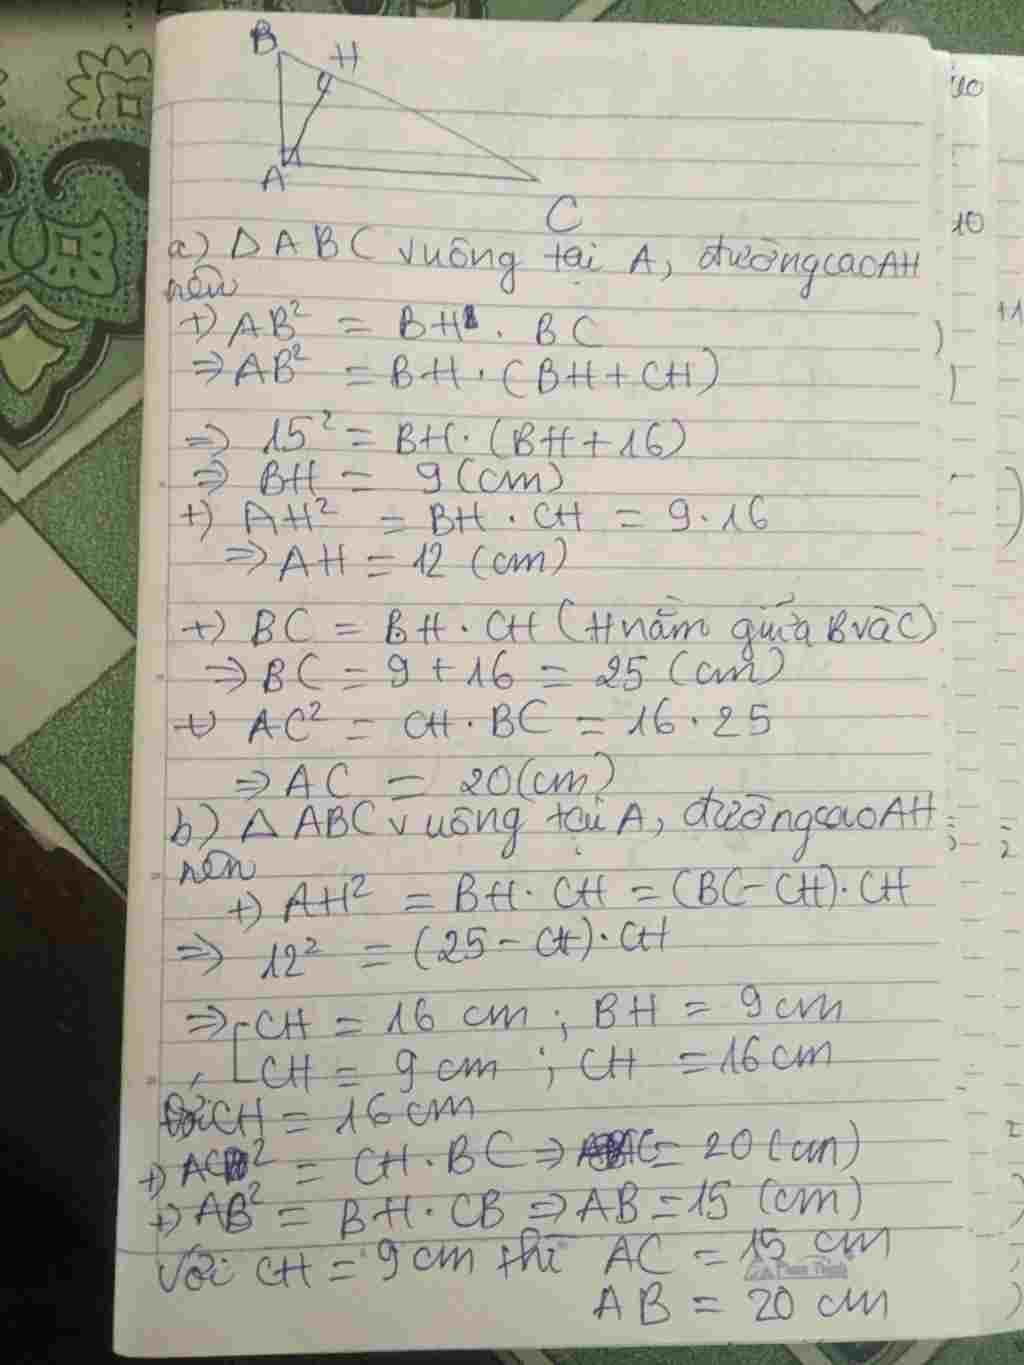 B
H
A
C
a) Δ ABC vuông tại A, đường cao AH
nên
+) AB² = BH . BC
=> AB² = BH . (BH + CH)
=> 15² = BH . (BH + 16)
=> BH = 9 (cm)
+) AH² = BH . CH = 9 . 16
=> AH = 12 (cm)
+) BC = BH . CH (H nằm giữa B và C)
=> BC = 9 + 16 = 25 (cm)
+) AC² = CH . BC = 16 . 25
=> AC = 20 (cm)
b) Δ ABC vuông tại A, đường cao AH
nên
+) AH² = BH . CH = (BC - CH) . CH
=> 12² = (25 - CH) . CH
=> [ CH = 16 cm ; BH = 9 cm
CH = 9 cm ; CH = 16 cm
Với CH = 16 cm
+) AC² = CH . BC => AC = 20 (cm)
+) AB² = BH . CB => AB = 15 (cm)
Với CH = 9 cm thì AC = 15 cm
AB = 20 cm